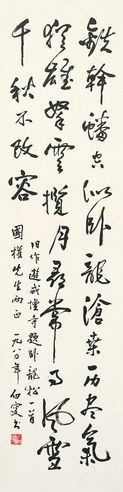 鐵幹蟠空似臥龍滄桑历尽氣
猶雄拏雲攬月尋常事風雪
千秋不改容
旧作遊戒壇寺題臥龍松一首
國權先生兩正 一九八〇年